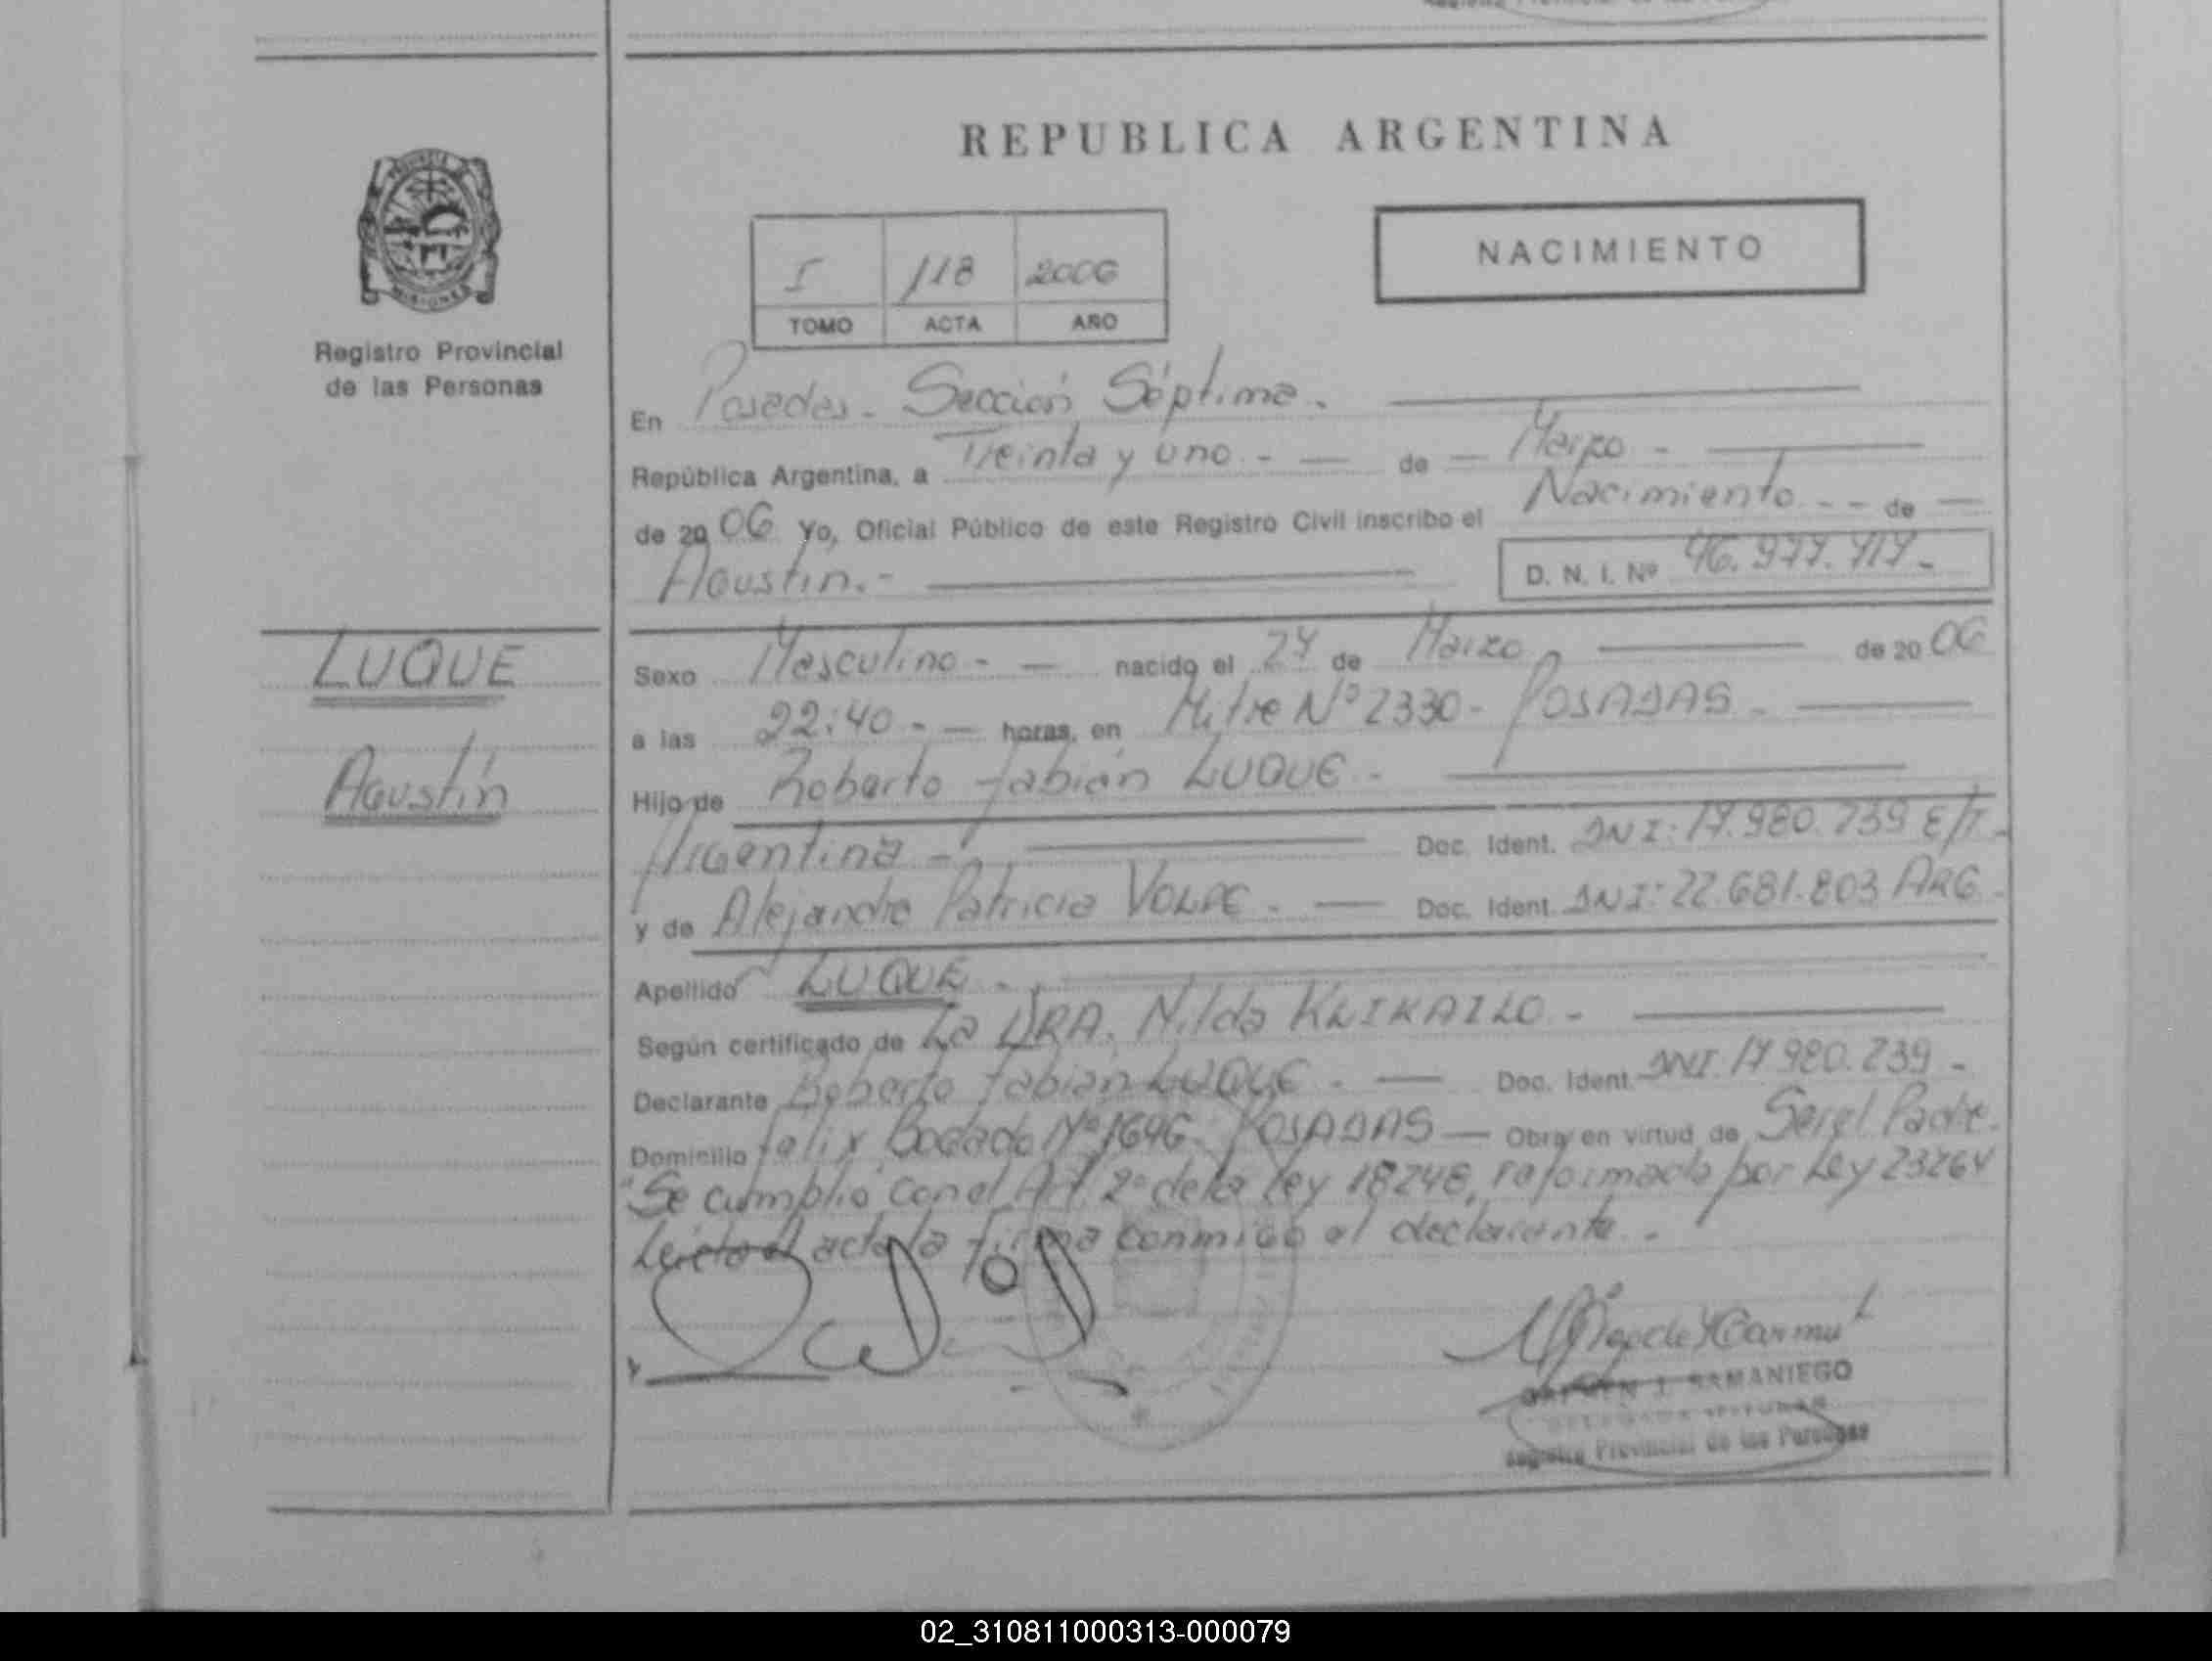 REPUBLICA ARGENTINA
NACIMIENTO
I 118 2006
TOMO ACTA AÑO
Registro Provincial
de las Personas
En Posadas - Sección Séptima.
República Argentina, a Treinta y uno - - de - Marzo -
de 2006 Yo, Oficial Público de este Registro Civil inscribo el Nacimiento - - de -
Agustín.-
D. N. I. Nº
LUQUE
Agustín
Sexo Masculino - - nacido el de Marzo de 2006
a las 22:40 - - horas, en Mitre Nº 2330 - POSADAS -
Hijo de Roberto Fabián LUQUE -
Argentina - Doc. Ident. DNI: E/T -
y de Alejandra Patricia VOLPE - - Doc. Ident. DNI: 22.681.803 ARG -
Apellido LUQUE -
Según certificado de La DRA. Nilda KLIKAILO -
Declarante Roberto Fabián LUQUE - - Doc. Ident. DNI -
Domicilio Felix Bogado Nº 1646 - POSADAS - Obra en virtud de Ser el Padre.
"Se cumplió con el Art 2º de la Ley 18248, reformada por Ley 23264
Leída el acta la firma conmigo el declarante -
CARMEN J. SAMANIEGO
Registro Provincial de las Personas
02_310811000313-000079